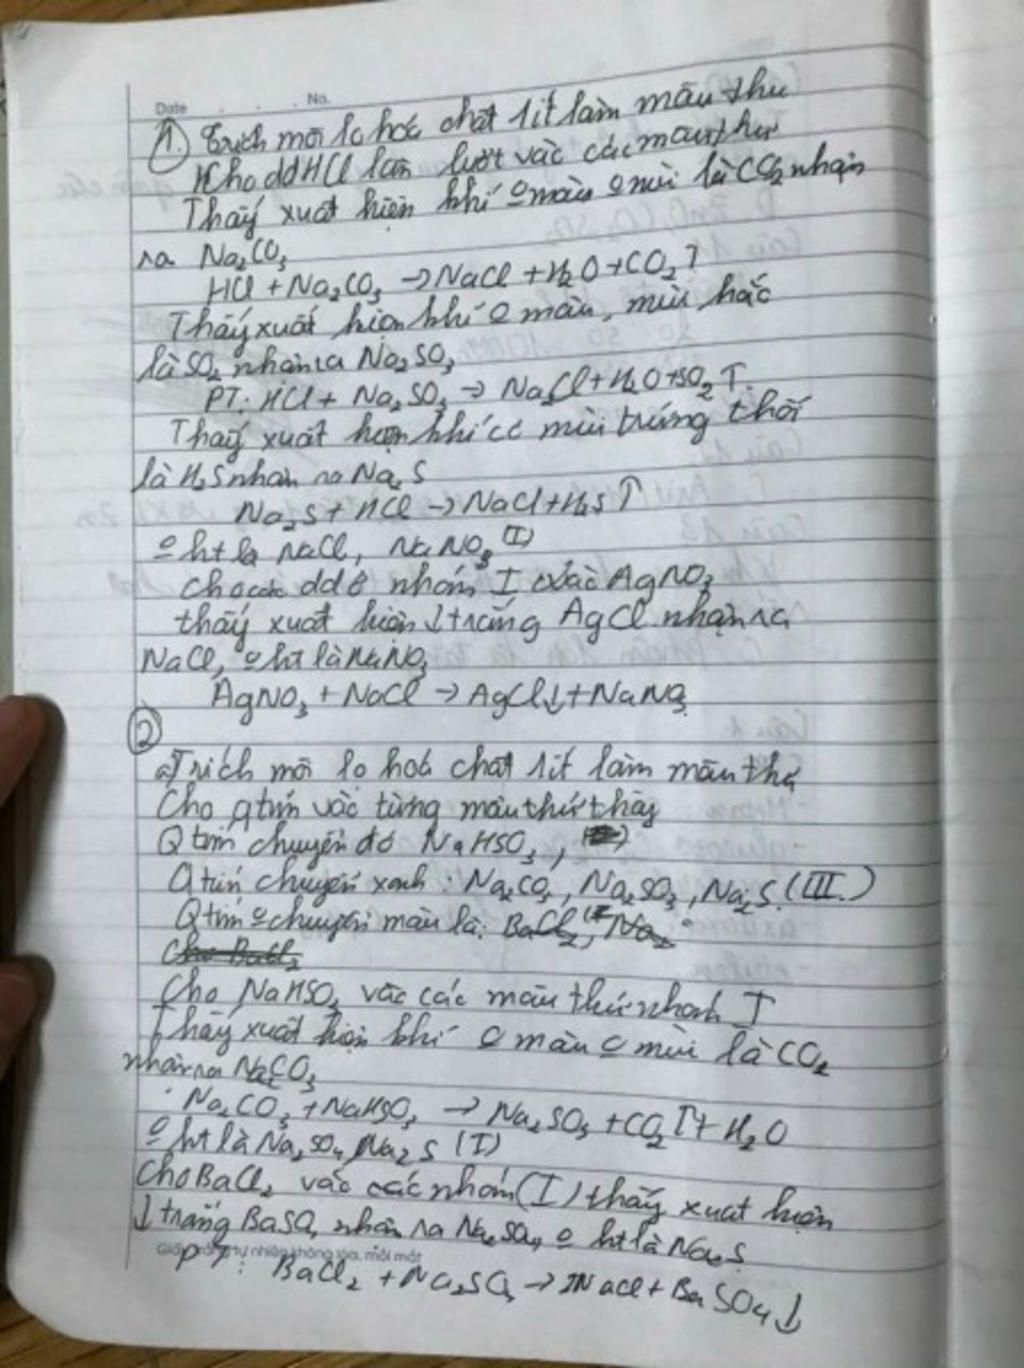 Date . . . No.
1. Trích mỗi lọ hoá chất 1 ít làm mẫu thử
Cho dd HCl lần lượt vào các mẫu thử
Thấy xuất hiện khí o màu o mùi là CO2 nhận
ra Na2CO3
HCl + Na2CO3 → NaCl + H2O + CO2↑
Thấy xuất hiện khí o màu, mùi hắc
là SO2 nhận ra Na2SO3
PT: HCl + Na2SO3 → NaCl + H2O + SO2↑
Thấy xuất hiện khí có mùi trứng thối
là H2S nhận ra Na2S
Na2S + HCl → NaCl + H2S↑
o ht là NaCl, NaNO3 (I)
cho các dd ở nhóm I vào AgNO3
thấy xuất hiện ↓ trắng AgCl nhận ra
NaCl, o ht là NaNO3
AgNO3 + NaCl → AgCl↓ + NaNO3
2
a) Trích mỗi lọ hoá chất 1 ít làm mẫu thử
Cho qtím vào từng mẫu thử thấy
Qtím chuyển đỏ NaHSO3,
Qtím chuyển xanh: Na2CO3, Na2SO3, Na2S (III)
Qtím o chuyển màu là: BaCl2,
Cho BaCl2
Cho NaHSO3 vào các mẫu thử nhóm I
Thấy xuất hiện khí o màu o mùi là CO2
nhận ra Na2CO3
Na2CO3 + NaHSO3 → Na2SO3 + CO2↑ + H2O
o ht là Na2SO4, Na2S (I)
Cho BaCl2 vào các nhóm (I) thấy xuất hiện
↓ trắng BaSO4 nhận ra Na2SO4, o ht là Na2S
Giấy trắng tự nhiên không lóa, mỏi mắt
PT: BaCl2 + Na2SO4 → 2NaCl + BaSO4↓